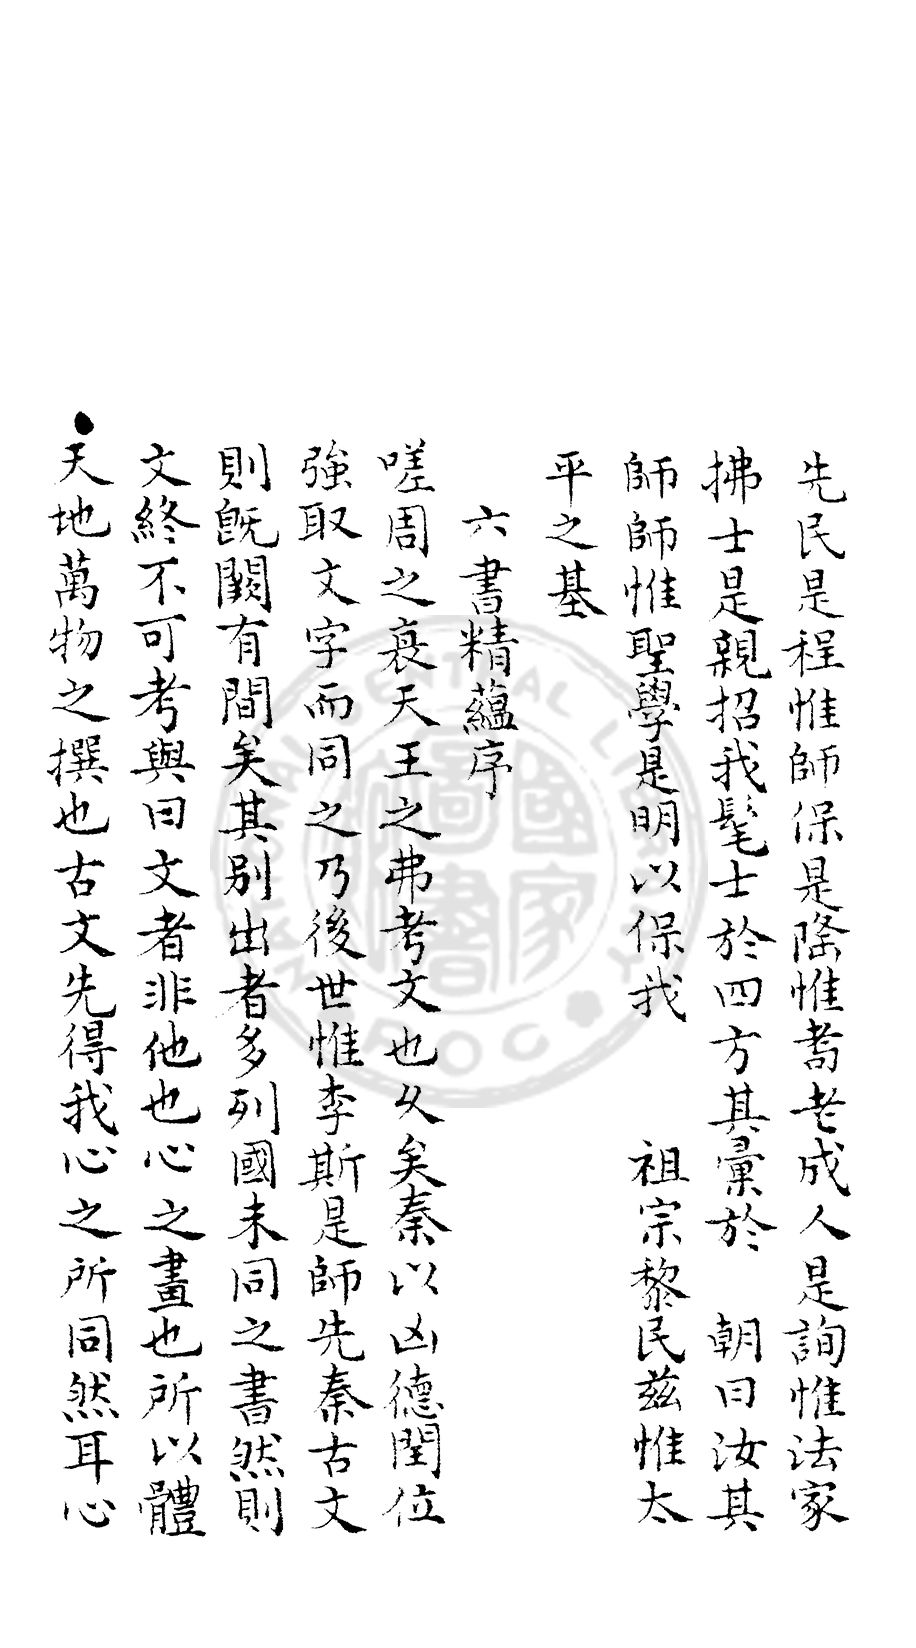 先民是程惟師保是隆惟耆老成人是詢惟法家
拂士是親招我髦士於四方其彙於　朝曰汝其
師師惟聖學是明以保我　祖宗黎民茲惟太
平之基
六書精蘊序
嗟周之衰天王之弗考文也久矣秦以凶德閏位
強取文字而同之乃後世惟李斯是師先秦古文
則旣闕有間矣其別出者多列國未同之書然則
文終不可考與曰文者非他也心之畫也所以體
天地萬物之撰也古文先得我心之所同然耳心
國家圖書館
NATIONAL CENTRAL LIBRARY